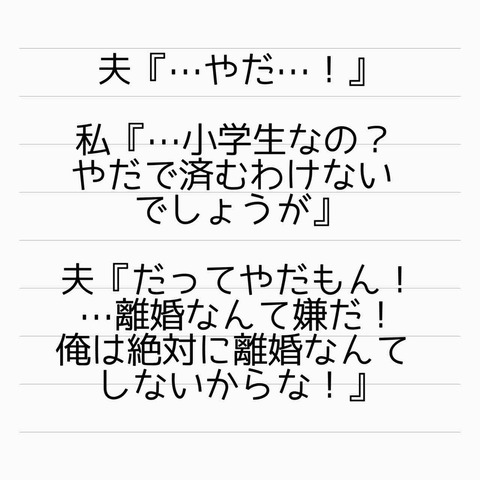 夫『…やだ…！』
私『…小学生なの？
やだで済むわけない
でしょうが』
夫『だってやだもん！
…離婚なんて嫌だ！
俺は絶対に離婚なんて
しないからな！』